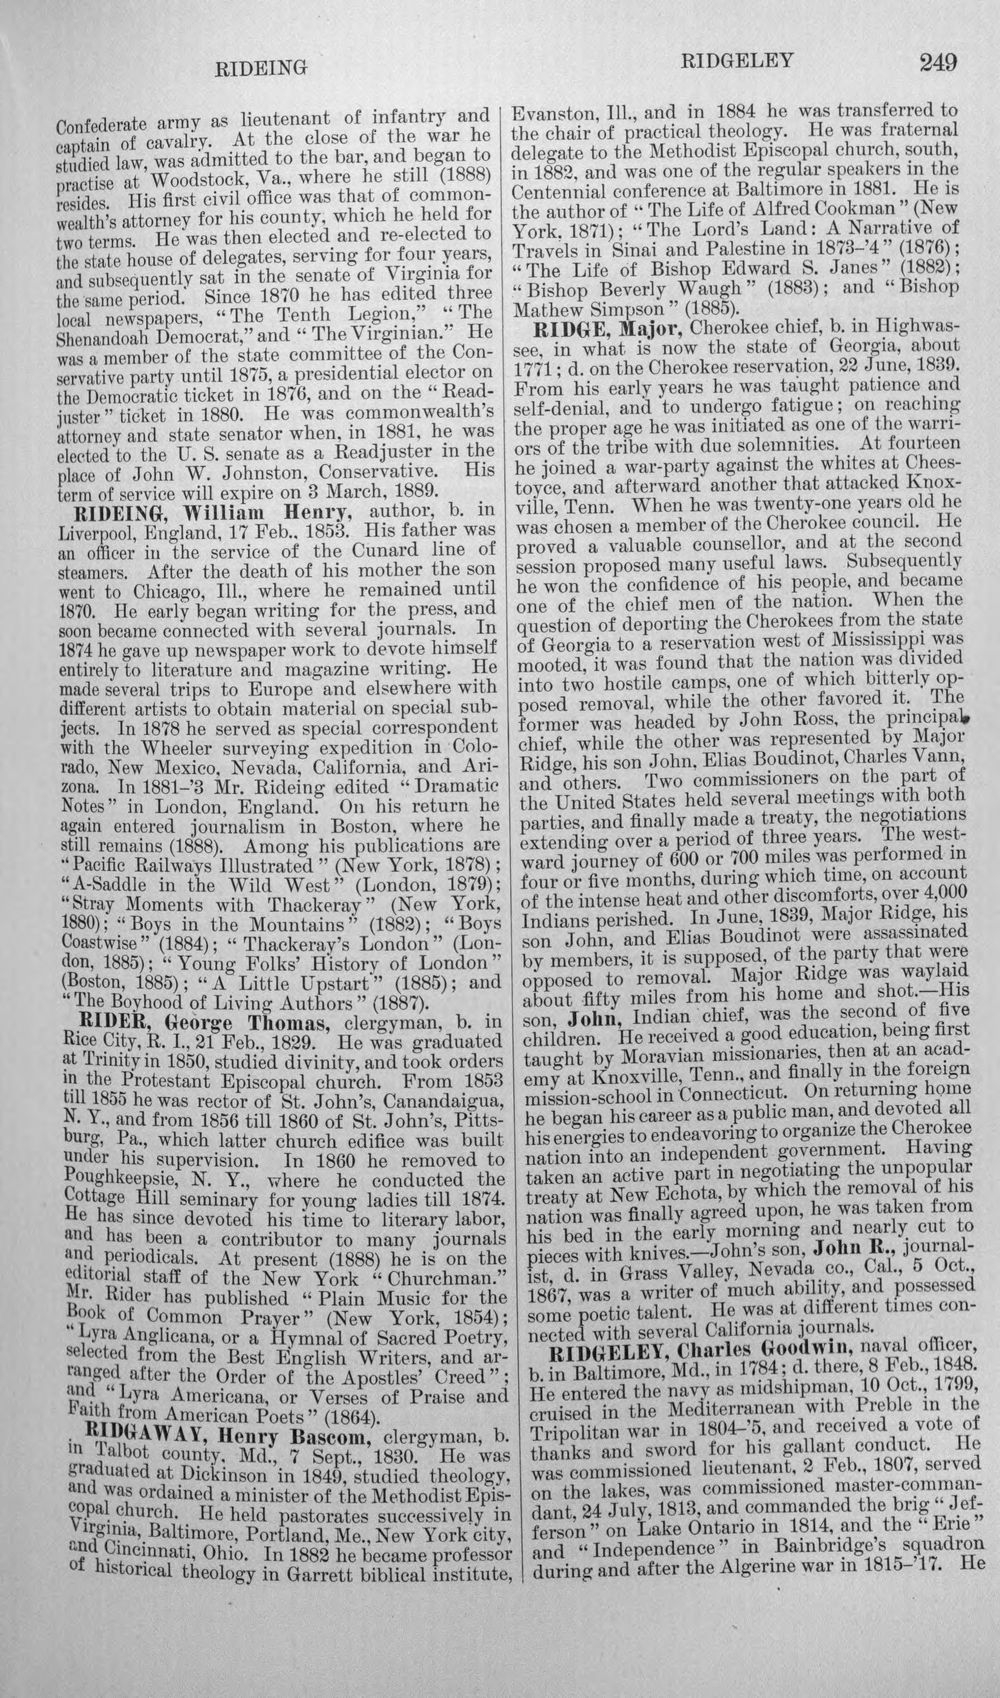 RIDEING
RIDGELEY
249
Confederate army as lieutenant of infantry and
captain of cavalry. At the close of the war he
studied law, was admitted to the bar, and began to
practise at Woodstock, Va., where he still (1888)
resides. His first civil office was that of common-
wealth's attorney for his county, which he held for
two terms. He was then elected and re-elected to
the state house of delegates, serving for four years,
and subsequently sat in the senate of Virginia for
the same period. Since 1870 he has edited three
local newspapers, “The Tenth Legion,” “The
Shenandoah Democrat,” and “The Virginian.” He
was a member of the state committee of the Con-
servative party until 1875, a presidential elector on
the Democratic ticket in 1876, and on the “Read-
juster” ticket in 1880. He was commonwealth's
attorney and state senator when, in 1881, he was
elected to the U. S. senate as a Readjuster in the
place of John W. Johnston, Conservative. His
term of service will expire on 3 March, 1889.
RIDEING, William Henry, author, b. in
Liverpool, England, 17 Feb., 1853. His father was
an officer in the service of the Cunard line of
steamers. After the death of his mother the son
went to Chicago, Ill., where he remained until
1870. He early began writing for the press, and
soon became connected with several journals. In
1874 he gave up newspaper work to devote himself
entirely to literature and magazine writing. He
made several trips to Europe and elsewhere with
different artists to obtain material on special sub-
jects. In 1878 he served as special correspondent
with the Wheeler surveying expedition in Colo-
rado, New Mexico, Nevada, California, and Ari-
zona. In 1881–'3 Mr. Rideing edited “Dramatic
Notes” in London, England. On his return he
again entered journalism in Boston, where he
still remains (1888). Among his publications are
“Pacific Railways Illustrated” (New York, 1878);
“A-Saddle in the Wild West” (London, 1879);
“Stray Moments with Thackeray” (New York,
1880); “Boys in the Mountains” (1882); “Boys
Coastwise” (1884); “Thackeray's London” (Lon-
don, 1885); “Young Folks' History of London”
(Boston, 1885); “A Little Upstart” (1885); and
“The Boyhood of Living Authors” (1887).
RIDER, George Thomas, clergyman, b. in
Rice City, R. I., 21 Feb., 1829. He was graduated
at Trinity in 1850, studied divinity, and took orders
in the Protestant Episcopal church. From 1853
till 1855 he was rector of St. John's, Canandaigua,
N. Y., and from 1856 till 1860 of St. John's, Pitts-
burg, Pa., which latter church edifice was built
under his supervision. In 1860 he removed to
Poughkeepsie, N. Y., where he conducted the
Cottage Hill seminary for young ladies till 1874.
He has since devoted his time to literary labor,
and has been a contributor to many journals
and periodicals. At present (1888) he is on the
editorial staff of the New York “Churchman.”
Mr. Rider has published “Plain Music for the
Book of Common Prayer” (New York, 1854);
“Lyra Anglicana, or a Hymnal of Sacred Poetry,
selected from the Best English Writers, and ar-
ranged after the Order of the Apostles' Creed”;
and “Lyra Americana, or Verses of Praise and
Faith from American Poets” (1864).
RIDGAWAY, Henry Bascom, clergyman, b.
in Talbot county, Md., 7 Sept., 1830. He was
graduated at Dickinson in 1849, studied theology,
and was ordained a minister of the Methodist Epis-
copal church. He held pastorates successively in
Virginia, Baltimore, Portland, Me., New York city,
and Cincinnati, Ohio. In 1882 he became professor
of historical theology in Garrett biblical institute,
Evanston, Ill., and in 1884 he was transferred to
the chair of practical theology. He was fraternal
delegate to the Methodist Episcopal church, south,
in 1882, and was one of the regular speakers in the
Centennial conference at Baltimore in 1881. He is
the author of “The Life of Alfred Cookman” (New
York, 1871); “The Lord's Land: A Narrative of
Travels in Sinai and Palestine in 1873–'4” (1876);
“The Life of Bishop Edward S. Janes” (1882);
“Bishop Beverly Waugh” (1883); and “Bishop
Mathew Simpson” (1885).
RIDGE, Major, Cherokee chief, b. in Highwas-
see, in what is now the state of Georgia, about
1771; d. on the Cherokee reservation, 22 June, 1839.
From his early years he was taught patience and
self-denial, and to undergo fatigue; on reaching
the proper age he was initiated as one of the warri-
ors of the tribe with due solemnities. At fourteen
he joined a war-party against the whites at Chees-
toyce, and afterward another that attacked Knox-
ville, Tenn. When he was twenty-one years old he
was chosen a member of the Cherokee council. He
proved a valuable counsellor, and at the second
session proposed many useful laws. Subsequently
he won the confidence of his people, and became
one of the chief men of the nation. When the
question of deporting the Cherokees from the state
of Georgia to a reservation west of Mississippi was
mooted, it was found that the nation was divided
into two hostile camps, one of which bitterly op-
posed removal, while the other favored it. The
former was headed by John Ross, the principal
chief, while the other was represented by Major
Ridge, his son John, Elias Boudinot, Charles Vann,
and others. Two commissioners on the part of
the United States held several meetings with both
parties, and finally made a treaty, the negotiations
extending over a period of three years. The west-
ward journey of 600 or 700 miles was performed in
four or five months, during which time, on account
of the intense heat and other discomforts, over 4,000
Indians perished. In June, 1839, Major Ridge, his
son John, and Elias Boudinot were assassinated
by members, it is supposed, of the party that were
opposed to removal. Major Ridge was waylaid
about fifty miles from his home and shot.—His
son, John, Indian chief, was the second of five
children. He received a good education, being first
taught by Moravian missionaries, then at an acad-
emy at Knoxville, Tenn., and finally in the foreign
mission-school in Connecticut. On returning home
he began his career as a public man, and devoted all
his energies to endeavoring to organize the Cherokee
nation into an independent government. Having
taken an active part in negotiating the unpopular
treaty at New Echota, by which the removal of his
nation was finally agreed upon, he was taken from
his bed in the early morning and nearly cut to
pieces with knives.—John's son, John R., journal-
ist, d. in Grass Valley, Nevada co., Cal., 5 Oct.,
1867, was a writer of much ability, and possessed
some poetic talent. He was at different times con-
nected with several California journals.
RIDGELEY, Charles Goodwin, naval officer,
b. in Baltimore, Md., in 1784; d. there, 8 Feb., 1848.
He entered the navy as midshipman, 10 Oct., 1799,
cruised in the Mediterranean with Preble in the
Tripolitan war in 1804–'5, and received a vote of
thanks and sword for his gallant conduct. He
was commissioned lieutenant, 2 Feb., 1807, served
on the lakes, was commissioned master-comman-
dant, 24 July, 1813, and commanded the brig “Jef-
ferson” on Lake Ontario in 1814, and the “Erie”
and “Independence” in Bainbridge's squadron
during and after the Algerine war in 1815–'17. He